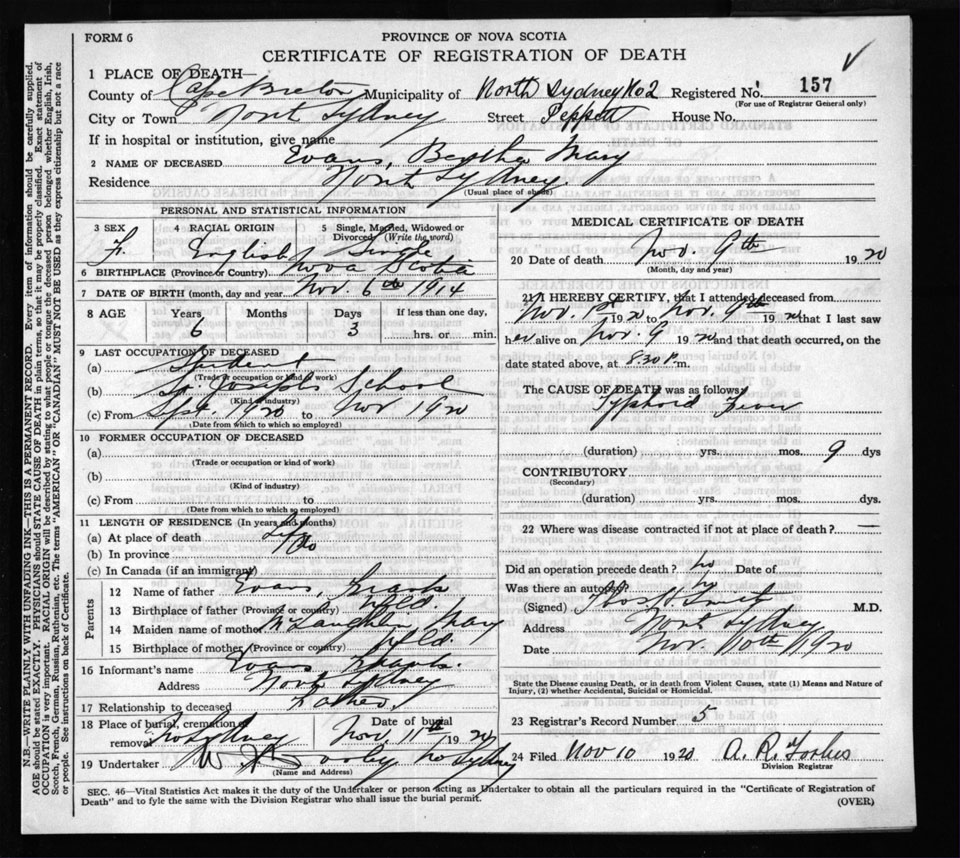 FORM 6
PROVINCE OF NOVA SCOTIA
CERTIFICATE OF REGISTRATION OF DEATH
1 PLACE OF DEATH—
County of Cape Breton Municipality of North Sydney No 2 Registered No. 157
(For use of Registrar General only)
City or Town North Sydney Street Peppett House No.
If in hospital or institution, give name
2 NAME OF DECEASED Evans, Bertha Mary
Residence North Sydney.
(Usual place of abode)
PERSONAL AND STATISTICAL INFORMATION
3 SEX F. 4 RACIAL ORIGIN English 5 Single, Married, Widowed or Divorced (Write the word) Single
6 BIRTHPLACE (Province or Country) Nova Scotia
7 DATE OF BIRTH (month, day and year) Nov. 6th 1914
8 AGE Years 6 Months Days 3 If less than one day, hrs. or min.
9 LAST OCCUPATION OF DECEASED
(a) Student
(Trade or occupation or kind of work)
(b) St. Josephs School
(Kind of industry)
(c) From Sept. 1920 to Nov 1920
(Date from which to which so employed)
10 FORMER OCCUPATION OF DECEASED
(a)
(Trade or occupation or kind of work)
(b)
(Kind of industry)
(c) From to
(Date from which to which so employed)
11 LENGTH OF RESIDENCE (In years and months)
(a) At place of death Life
(b) In province Do
(c) In Canada (if an immigrant)
Parents
12 Name of father Evans,
13 Birthplace of father (Province or country) Nfld.
14 Maiden name of mother McLaughlin Mary
15 Birthplace of mother (Province or country) Nfld.
16 Informant's name Evans
Address North Sydney
17 Relationship to deceased Father
18 Place of burial, cremation or removal No Sydney Date of burial Nov. 11th 1920
19 Undertaker No Sydney
(Name and Address)
MEDICAL CERTIFICATE OF DEATH
20 Date of death Nov. 9th 1920
(Month, day and year)
21 I HEREBY CERTIFY, that I attended deceased from
Nov. 1st 1920 to Nov. 9th 1920 that I last saw
her alive on Nov. 9 1920 and that death occurred, on the
date stated above, at 8.30 P. m.
The CAUSE OF DEATH was as follows
Typhoid Fever
(duration) yrs. mos. 9 dys
CONTRIBUTORY
(Secondary)
(duration) yrs. mos. dys.
22 Where was disease contracted if not at place of death? —
Did an operation precede death? no Date of
Was there an autopsy? no
(Signed) M.D.
Address North Sydney
Date Nov. 10th 1920
State the Disease causing Death, or in death from Violent Causes, state (1) Means and Nature of
Injury, (2) whether Accidental, Suicidal or Homicidal.
23 Registrar's Record Number 5
24 Filed Nov 10 1920 A. R. Forbes
Division Registrar
SEC. 46—Vital Statistics Act makes it the duty of the Undertaker or person acting as Undertaker to obtain all the particulars required in the "Certificate of Registration of
Death" and to fyle the same with the Division Registrar who shall issue the burial permit.
(OVER)
N.B.—WRITE PLAINLY WITH UNFADING INK—THIS IS A PERMANENT RECORD. Every item of information should be carefully supplied.
AGE should be stated EXACTLY. PHYSICIANS should STATE CAUSE OF DEATH in plain terms, so that it may be properly classified. Exact statement of
OCCUPATION is very important. RACIAL ORIGIN will be described by stating to what people or tongue the deceased person belonged whether English, Irish,
Scotch, French, German, Russian, Ruthenian, etc. The terms "AMERICAN" OR "CANADIAN" MUST NOT BE USED as they express citizenship but not a race
or people. See instructions on back of Certificate.